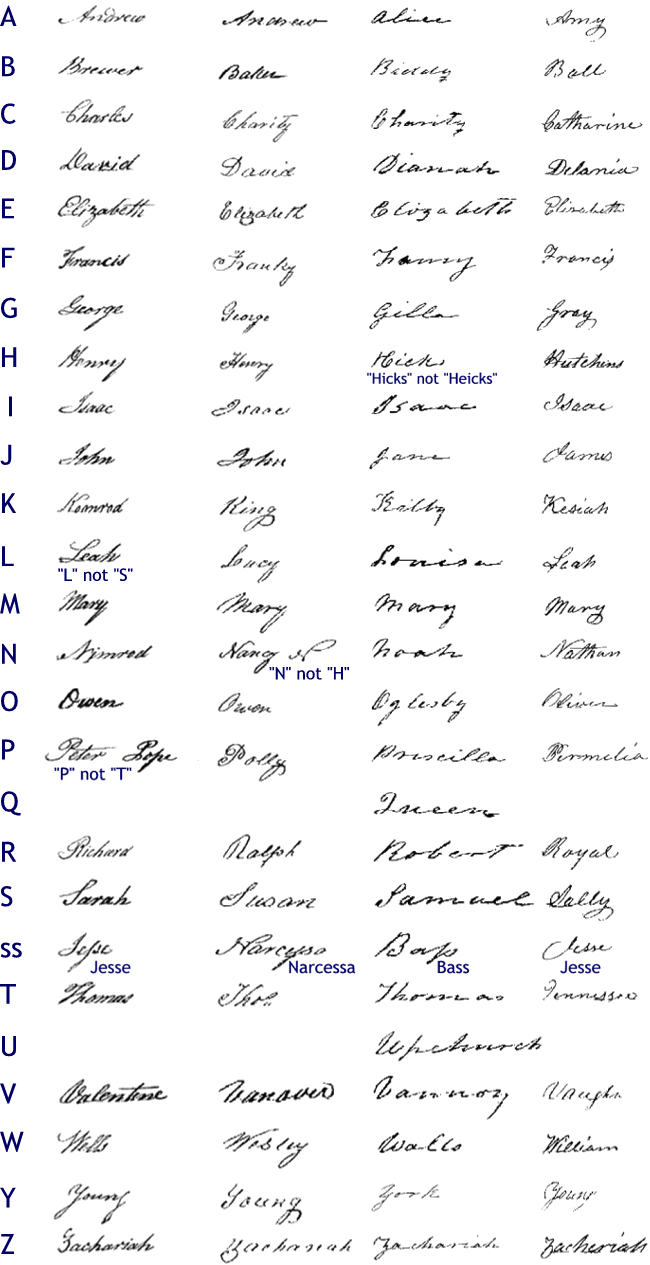 A Andrew Andrew Alice Amy
B Brewer Baker Biddy Ball
C Charles Charity Charity Catharine
D David David Dianah Delania
E Elizabeth Elizabeth Elizabeth Elizabeth
F Francis Franky Fanny Francis
G George George Gilla Gray
H Henry Henry Hicks Hutchins
"Hicks" not "Heicks"
I Isaac Isaac Isaac Isaac
J John John Jane James
K Komrod King Kilby Kesiah
L Leah Lucy Louisa Leah
"L" not "S"
M Mary Mary Mary Mary
N Nimrod Nancy N Noah Nathan
"N" not "H"
O Owen Owen Oglesby Oliver
P Peter Pope Polly Priscilla Permelia
"P" not "T"
Q Queen
R Richard Ralph Robert Royal
S Sarah Susan Samuel Sally
ss Jesse Narcyssa Bass Jesse
Jesse Narcessa Bass Jesse
T Thomas Thos. Thomas Tennessee
U Upchurch
V Valentine Vanover Vannoy Vaughn
W Wells Wesley Walls William
Y Young Young York Young
Z Zachariah Zachariah Zachariah Zacheriah